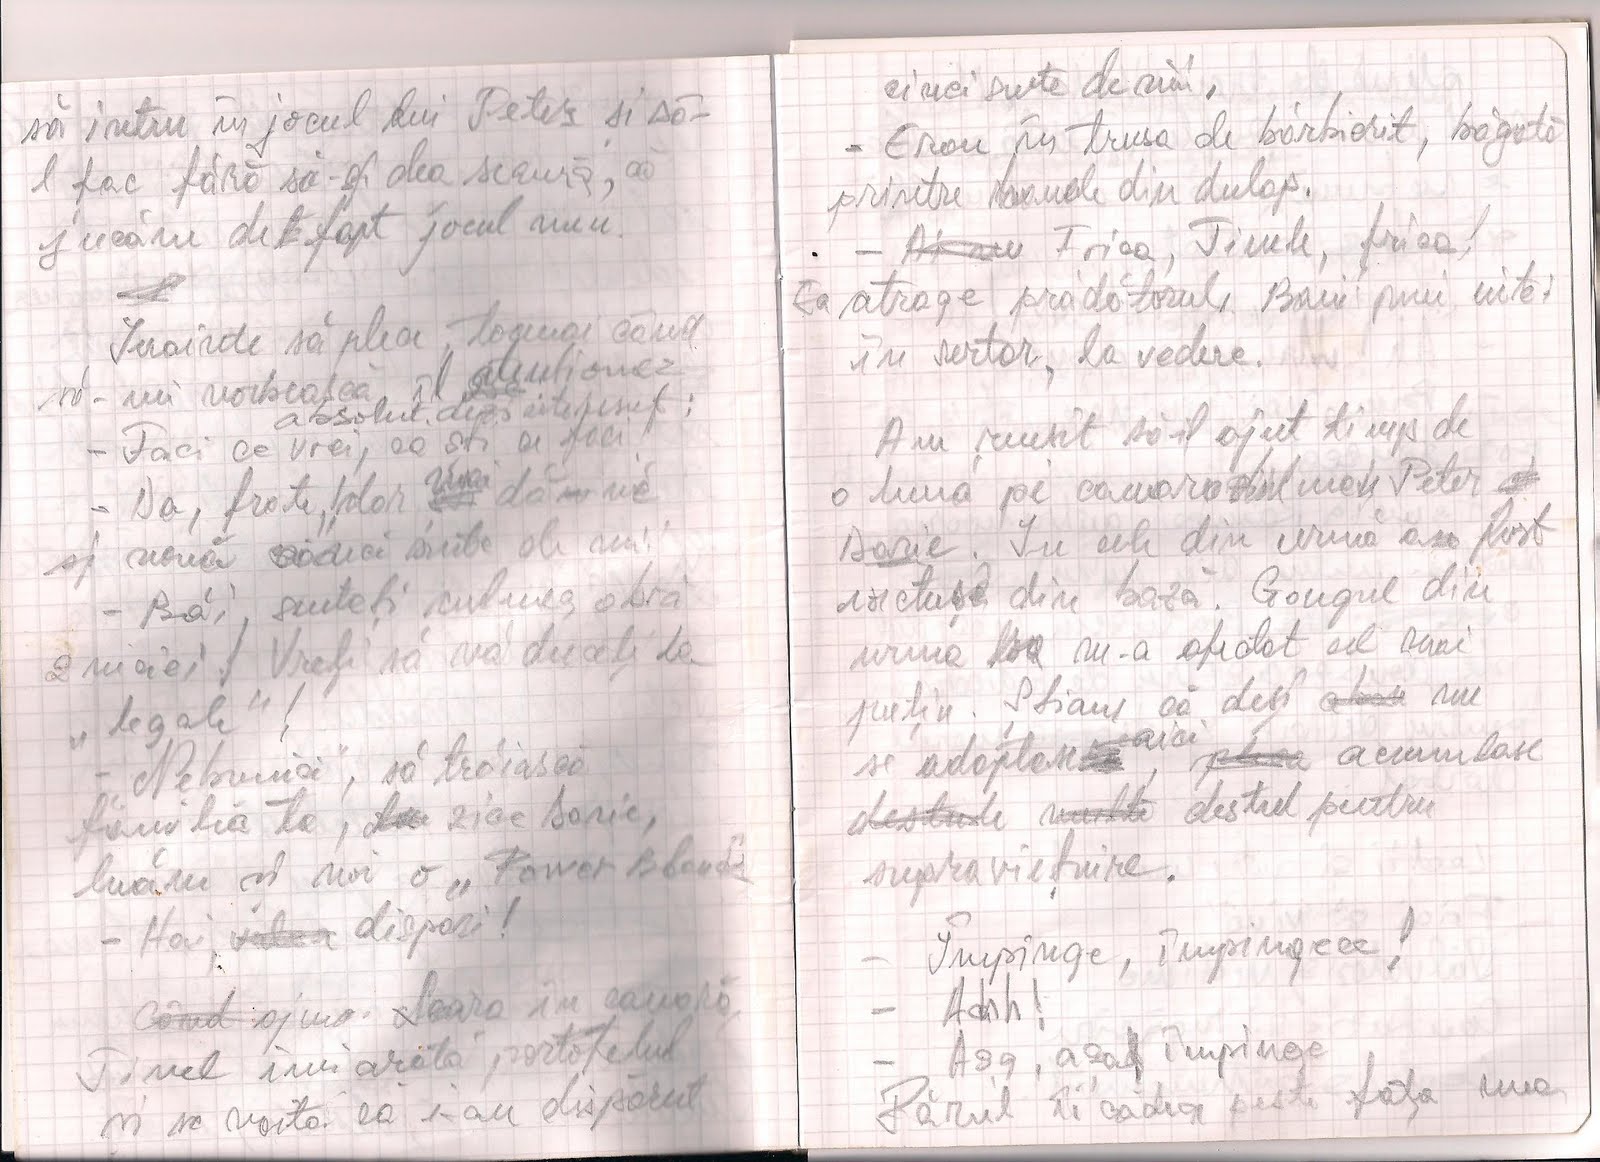 să intru în jocul lui Peter si să-
l fac fără să-și dea seama, că
jucăm de fapt jocul meu.
Înainte să plec, tocmai când
să-mi vorbească îl atenționez
absolut dezinteresat:
- Faci ce vrei, ca știi ce faci!
- Da, frate, dar mai dă-ne
și nouă cinci sute de mii!
- Băi, sunteți culmea obră
zniciei! Vreți să vă duceți la
„legale"!
- Nebunici, să trăiască
familia ta, zice Dorie,
luăm și noi o „Power Blanc"
- Hai, dispari!
ajung seara în cameră,
Tinel îmi arată portofelul
și se vaită că i-au dispărut
cinci sute de mii.
- Erau în trusa de bărbierit, băgată
printre hainele din dulap.
- Frica, Tinele, frica!
Ea atrage prădătorul. Banii pune-i
în sertar, la vedere.
Am reușit să-l ajut timp de
o lună pe camaradul meu Peter
Dorie. În cele din urmă a fost
din bază. Gongul din
urmă m-a afectat cel mai
puțin. Știam că deși nu
se adaptase aici, acumulase
destul pentru
supraviețuire.
- Împinge, împingeee!
- Ahh!
- Așa, așa, împinge
Părul îi cădea peste fața mea